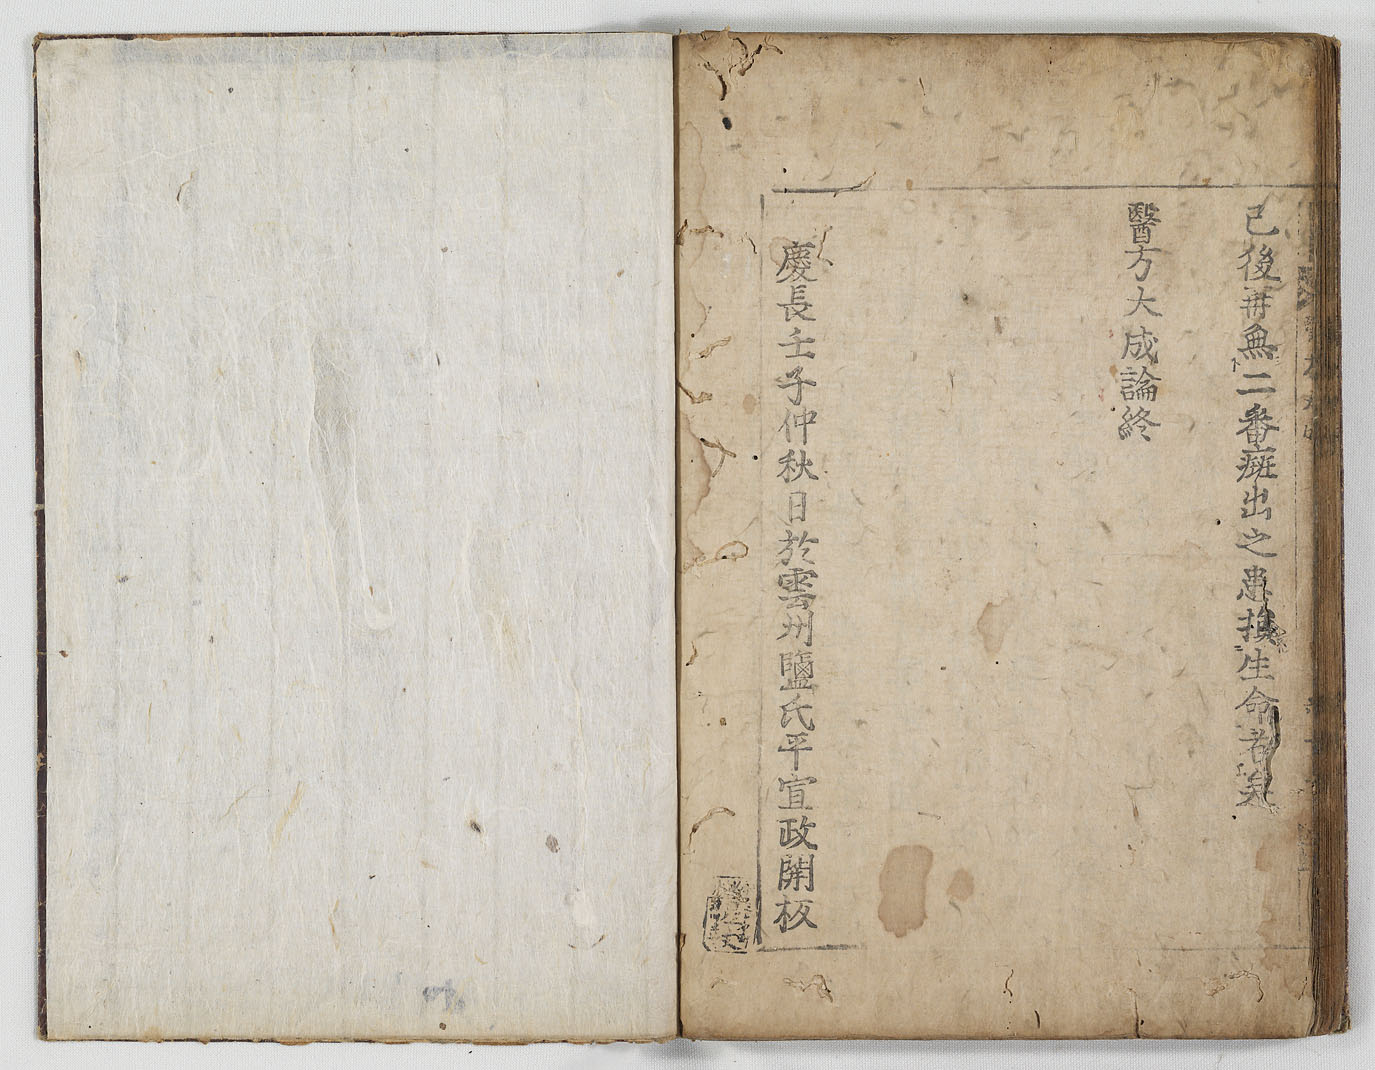 已後再無二番癍出之患損生命者矣
醫方大成論終
慶長壬子仲秋日於雲州鹽氏平宣政開板